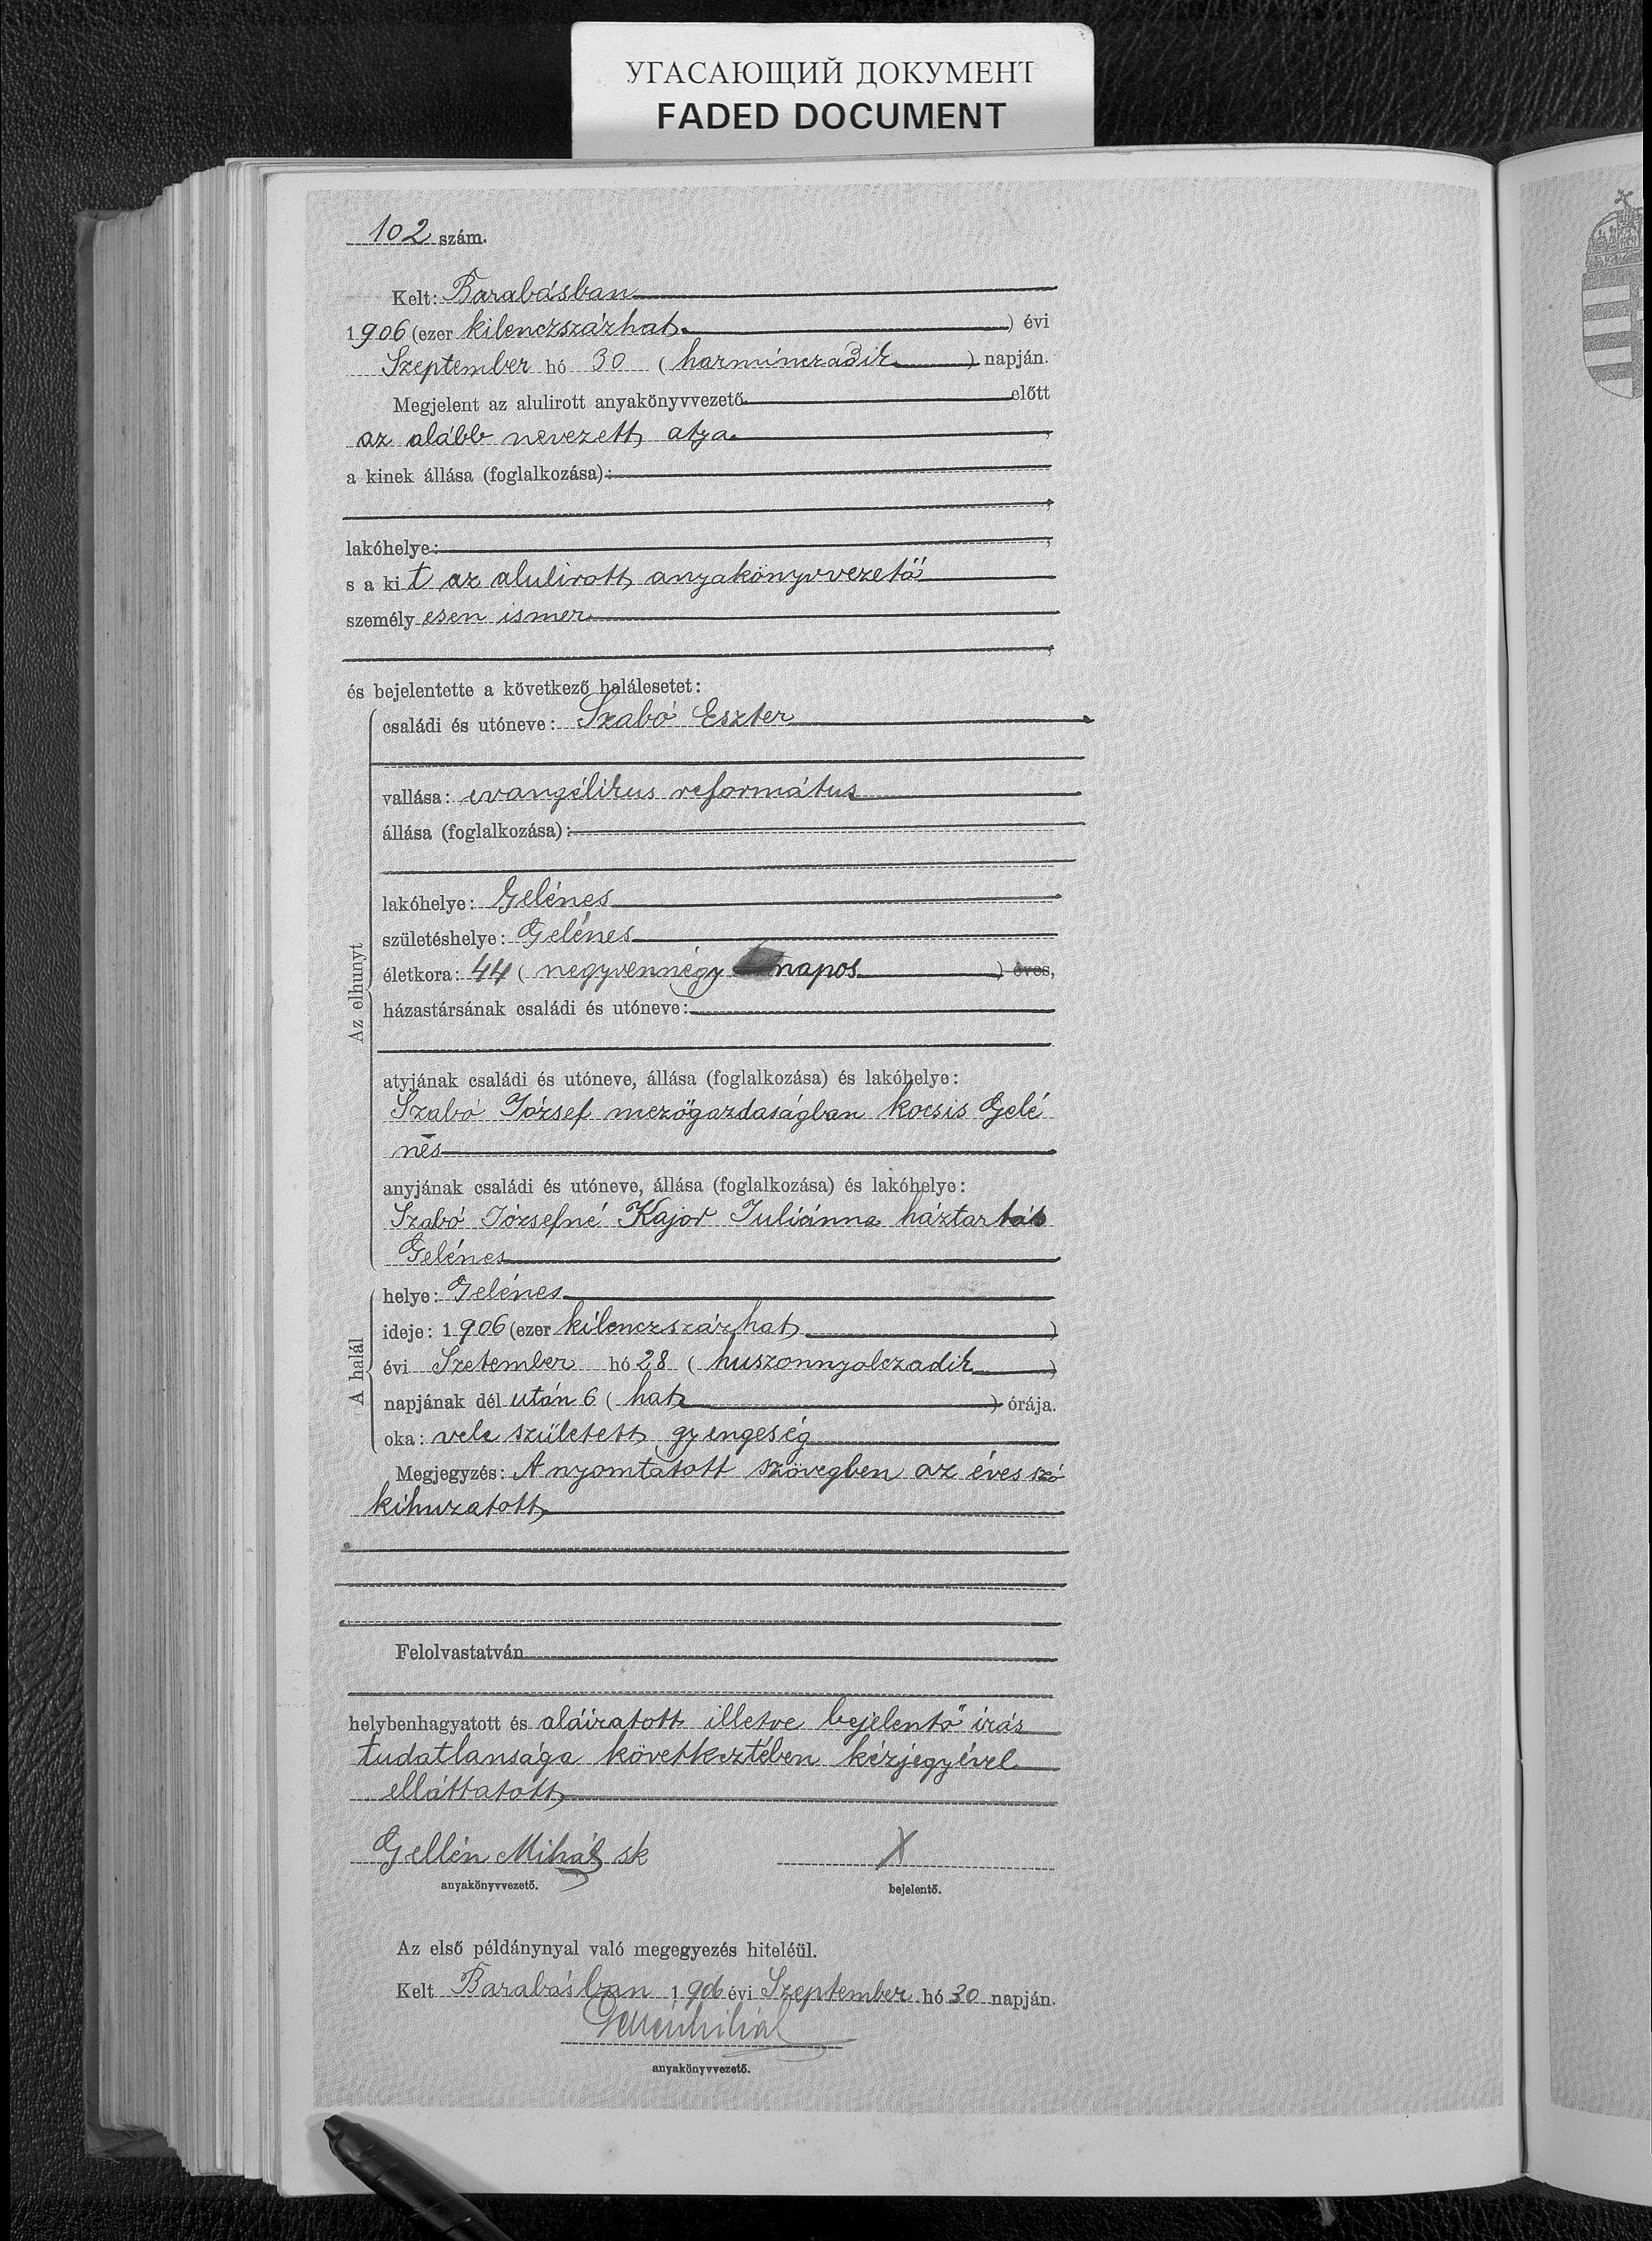 УГАСАЮЩИЙ ДОКУМЕНТ
FADED DOCUMENT
102 szám.
Kelt: Barabásban
1906 (ezer kilenczszázhat) évi
Szeptember hó 30 (harminczadik) napján.
Megjelent az alulirott anyakönyvvezető előtt
az alább nevezett atya,
a kinek állása (foglalkozása):
;
lakóhelye: ,
s a kit az alulirott anyakönyvvezető
személyesen ismer
,
és bejelentette a következő halálesetet:
Az elhunyt
családi és utóneve: Szabó Eszter
vallása: evangélikus református
állása (foglalkozása):
lakóhelye: Gelénes
születéshelye: Gelénes
életkora: 44 (negyvennégy napos) éves,
házastársának családi és utóneve:
atyjának családi és utóneve, állása (foglalkozása) és lakóhelye:
Szabó József mezőgazdaságban kocsis Gelé
nes
anyjának családi és utóneve, állása (foglalkozása) és lakóhelye:
Szabó Józsefné Kajor Juliánna háztartás
Gelénes
A halál
helye: Gelénes
ideje: 1906 (ezer kilenczszázhat)
évi Szetember hó 28 (huszonnyolczadik)
napjának dél után 6 (hat) órája.
oka: vele született gyengeség
Megjegyzés: A nyomtatott szövegben az éves szó
kihuzatott
Felolvastatván
helybenhagyatott és aláiratott illetve bejelentő irás
tudatlansága következtében kézjegyével
elláttatott
Gellén Mihál sk X
anyakönyvvezető. bejelentő.
Az első példánynyal való megegyezés hiteléül.
Kelt Barabásban 1906 évi Szeptember hó 30 napján.
Gellén Mihál
anyakönyvvezető.